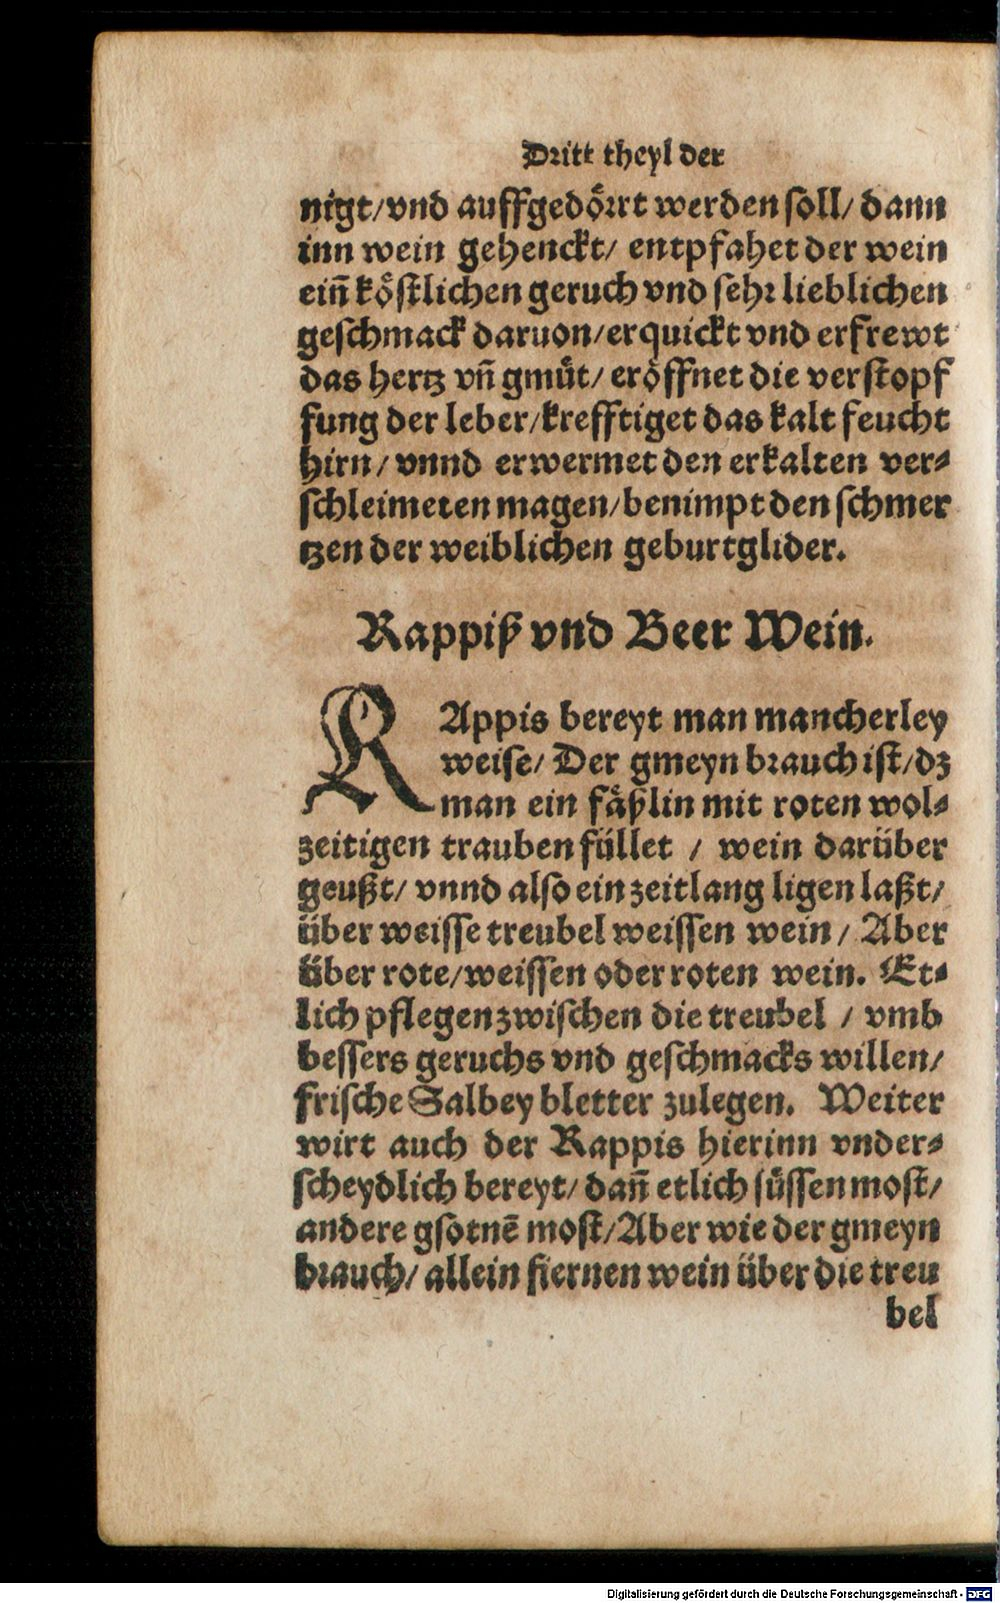 Dritt theyl der
nigt/vnd auffgedörrt werden soll/ dann
inn wein gehenckt/ entpfahet der wein
eiñ köstlichen geruch vnd sehr lieblichen
geschmack daruon/erquickt vnd erfrewt
das hertz vñ gmüt/ eröffnet die verstopf
fung der leber/krefftiget das kalt feucht
hirn/ vnnd erwermet den erkalten ver⸗
schleimeten magen/benimpt den schmer
tzen der weiblichen geburtglider.
Rappiß vnd Beer Wein.
RAppis bereyt man mancherley
weise/ Der gmeyn brauch ist/dz
man ein fäßlin mit roten wol⸗
zeitigen trauben füllet / wein darüber
geußt/ vnnd also ein zeitlang ligen laßt/
über weisse treubel weissen wein/ Aber
über rote/weissen oder roten wein. Et⸗
lich pflegen zwischen die treubel / vmb
bessers geruchs vnd geschmacks willen/
frische Salbey bletter zulegen. Weiter
wirt auch der Rappis hierinn vnder⸗
scheydlich bereyt/ dañ etlich süssen most/
andere gsotnē most/Aber wie der gmeyn
brauch/ allein fiernen wein über die treu
bel
Digitalisierung gefördert durch die Deutsche Forschungsgemeinschaft - DFG